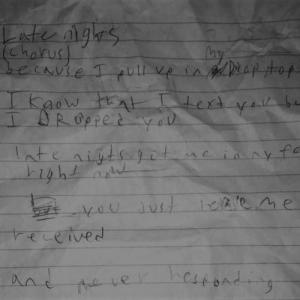 Late nights
(chorus)
my
because I pull up in drop top
I know that I text you bu
I DRopped you
late nigts got me in my fe
right now
you just leave me
received
and never responding